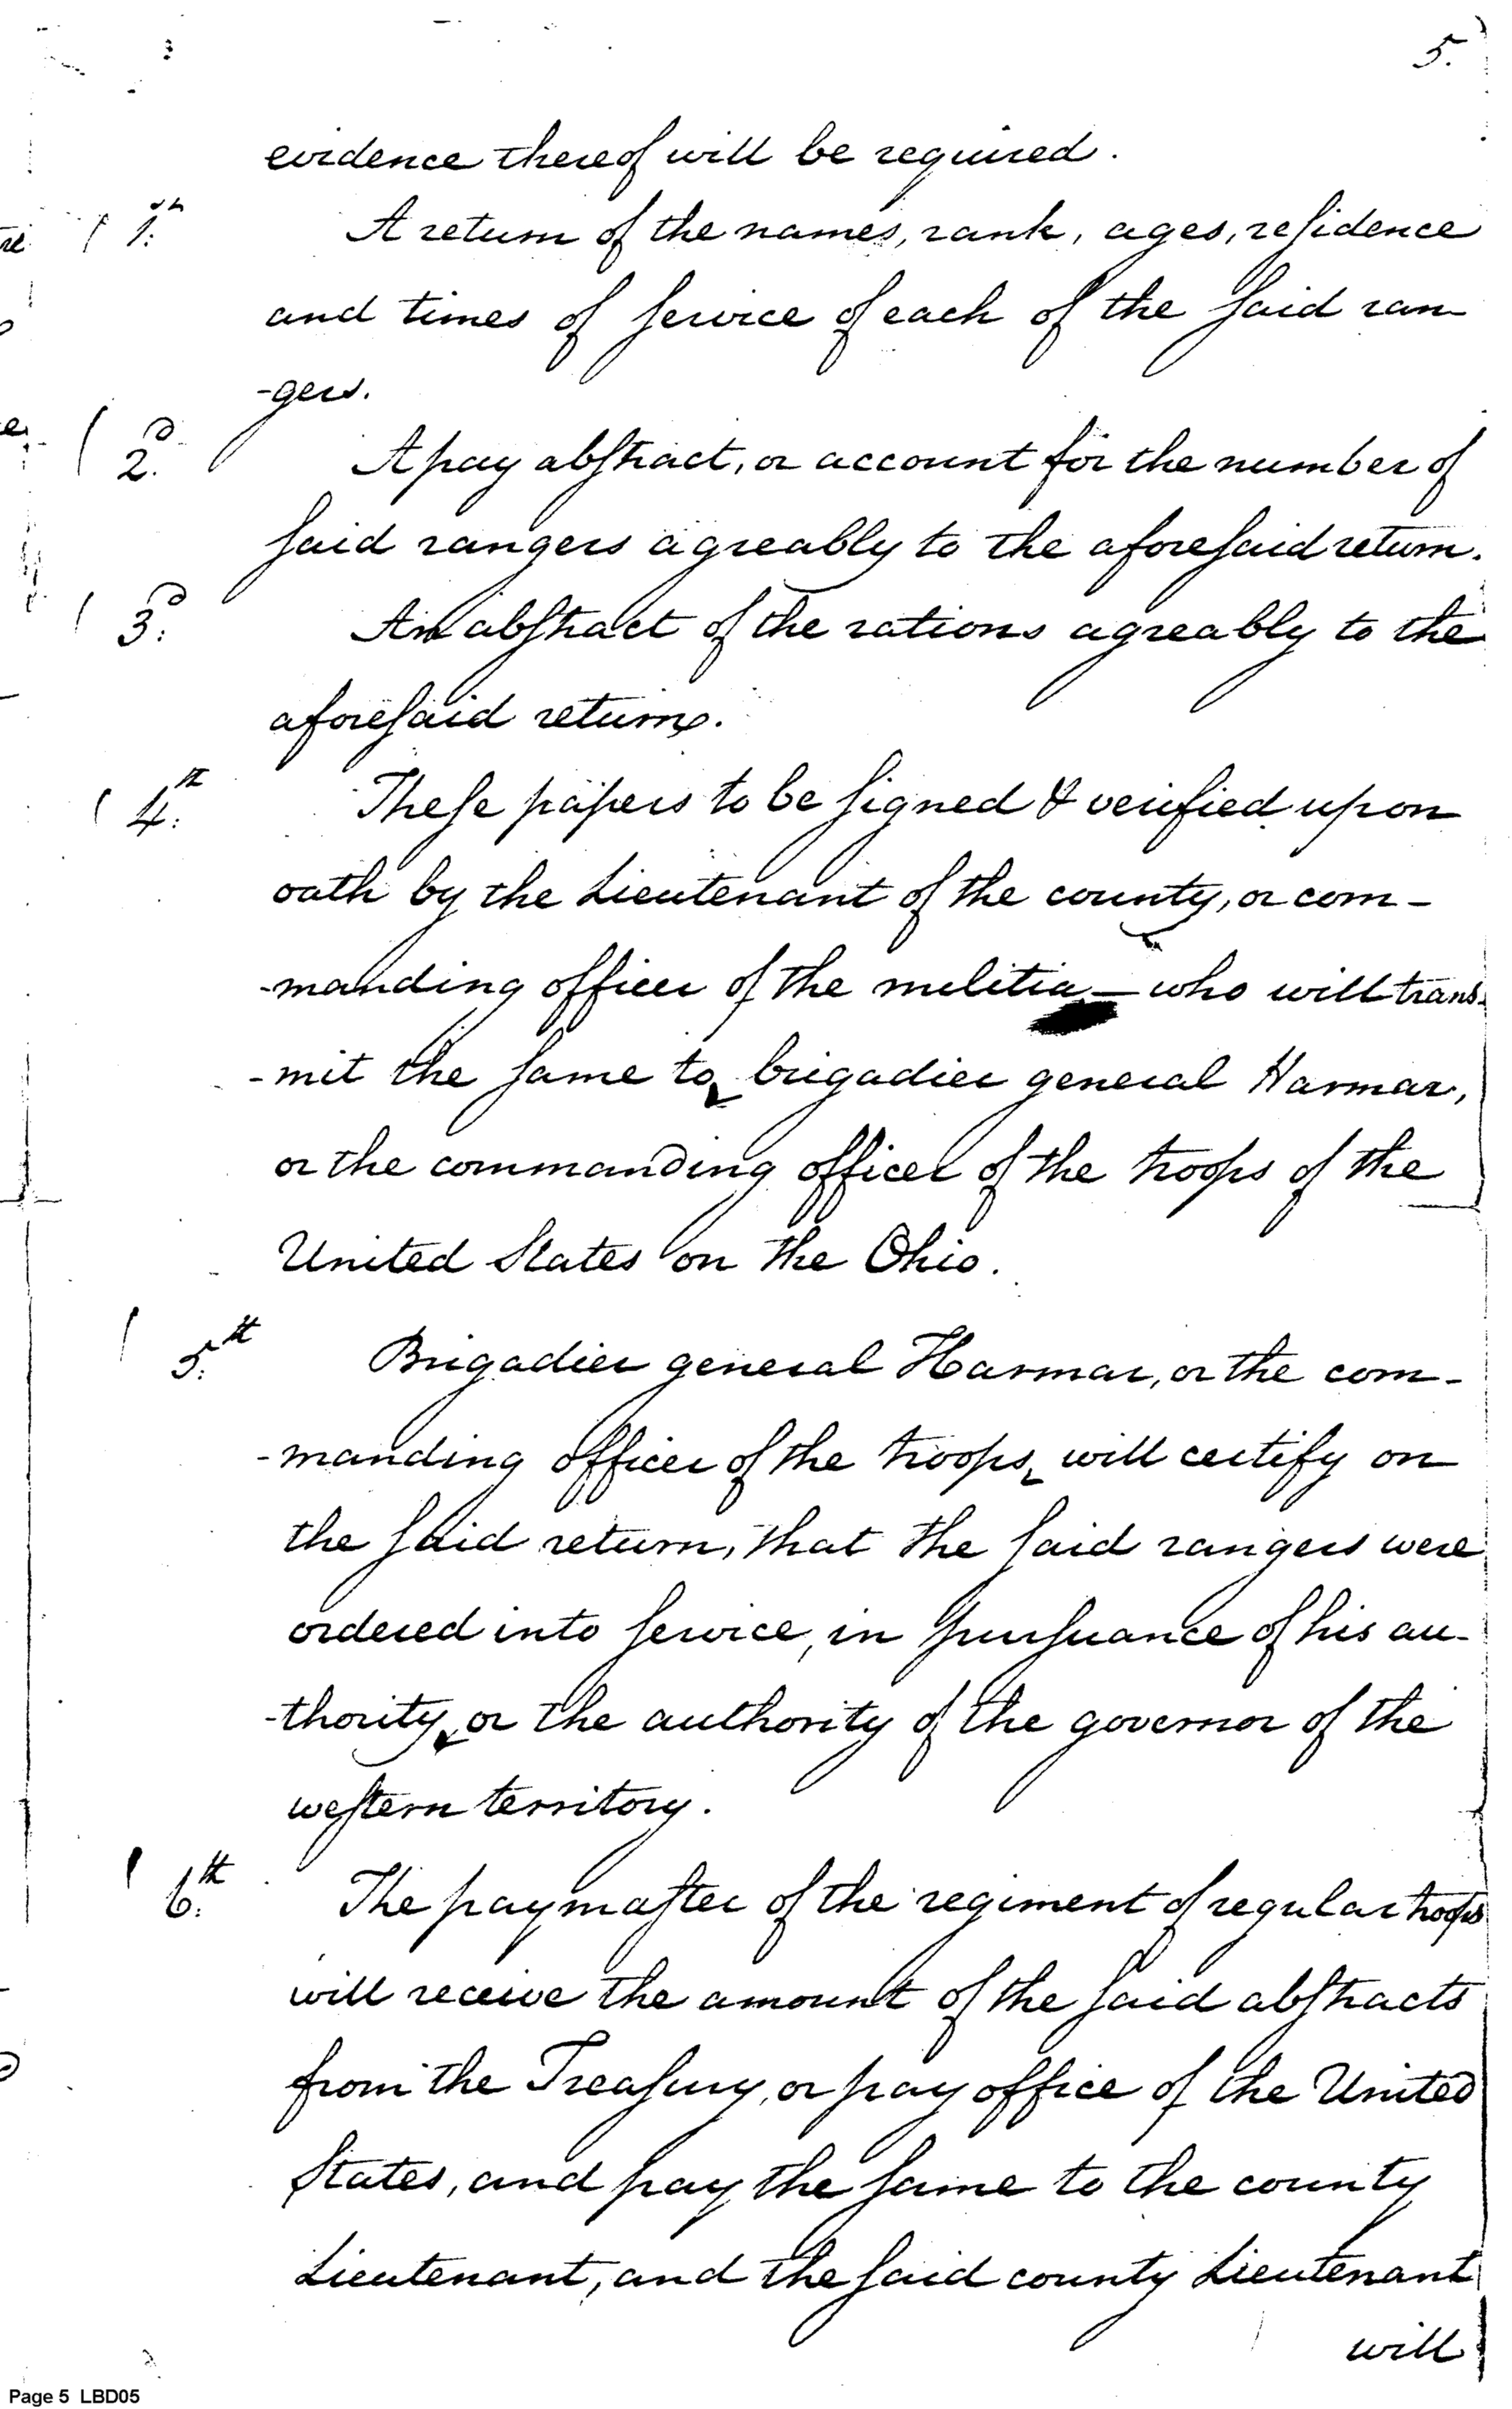 5.
evidence thereof will be required.
1st: A return of the names, rank, ages, residence
and times of service of each of the said ran
-gers.
2d. A pay abstract, or account for the number of
said rangers agreably to the aforesaid return.
3d: An abstract of the rations agreably to the
aforesaid returns.
4th: These papers to be signed & verified upon
oath by the Lieutenant of the county, or com-
-manding officer of the melitia — who will trans-
-mit the same to brigadier general Harmar,
or the commanding officer of the troops of the
United States on the Ohio.
5th: Brigadier general Harmar, or the com-
-manding officer of the troops, will certify on
the said return, that the said rangers were
ordered into service, in pursuance of his au-
-thority, or the authority of the governor of the
western territory.
6th: The paymaster of the regiment of regular troops
will receive the amount of the said abstracts
from the Treasury, or pay office of the United
States, and pay the same to the county
Lieutenant, and the said county Lieutenant
will
Page 5 LBD05